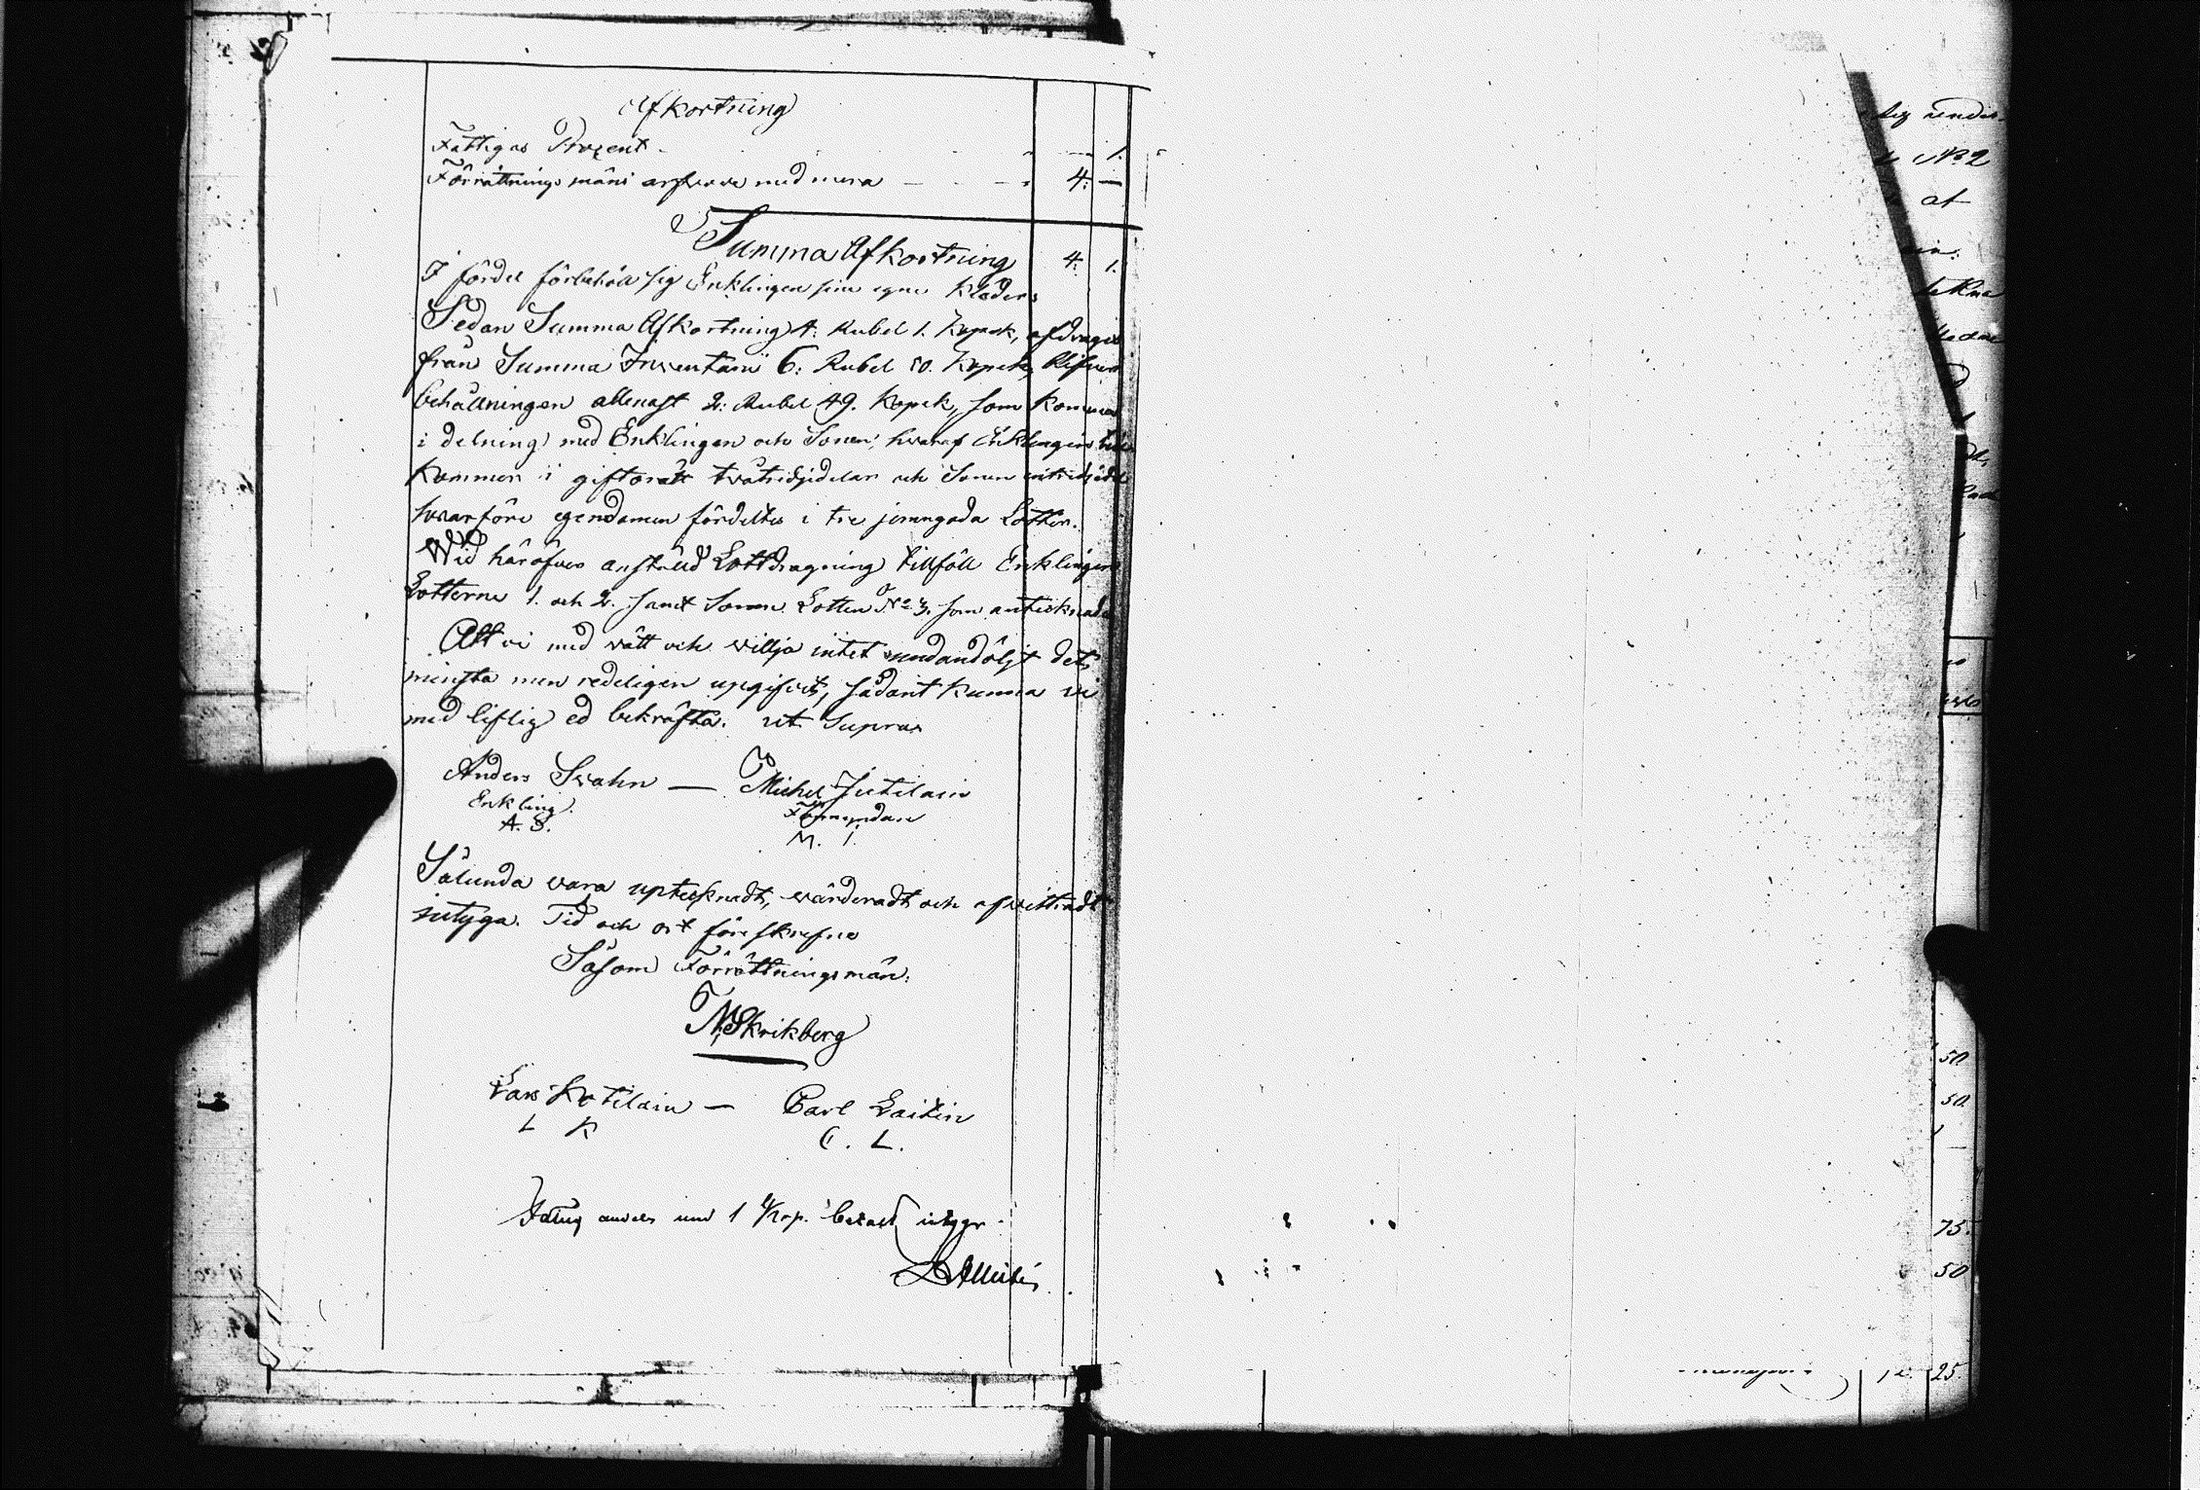 Afkortning
Fattigas Procent - 1.
Förrättningsmäns arfvode med mera - - - 4. -
Summa Afkortning 4. 1.
I fördel förbehöll sig Enklingen sine egne kläder.
Sedan Summa Afkortning 4. Rubel 1. Kopek, afdragit
från Summa Inventarii 6: Rubel 50. Kopek, blifver
behållningen allenast 2: Rubel 49. Kopek, som kommer
i delning med Enklingen och Sonen, hvaraf Enklingen till
kommer i giftorätt tvåtridjedelar och Sonen entridjedel
hvarföre egendomen fördeltes i tre jemngoda Lotter.
Wid häröfver anstäld Lottdragning tillföll Enklingen
Lotterne 1. och 2. samt Sonen Lotten No 3. som antecknades
Att vi med vått och villja intet undandöljt det
minsta men redeligen upgifvit, sådant kunna vi
med liflig ed bekräfta. ut Supra
Anders Svahn — Michel Jutilain
Enkling Förmyndare
A. S. M. I.
Sålunda vara uptecknadt, värderadt och afvittradt
intyga. Tid och ort föreskrefne
Såsom Förrättningsmän:
N Skrikberg
Lars Kotilain — Carl Laitin
L K C. L.
Fattig andels med 1 Kop. betalt intygar
75.
50
25.
50.
50.
No 2
at